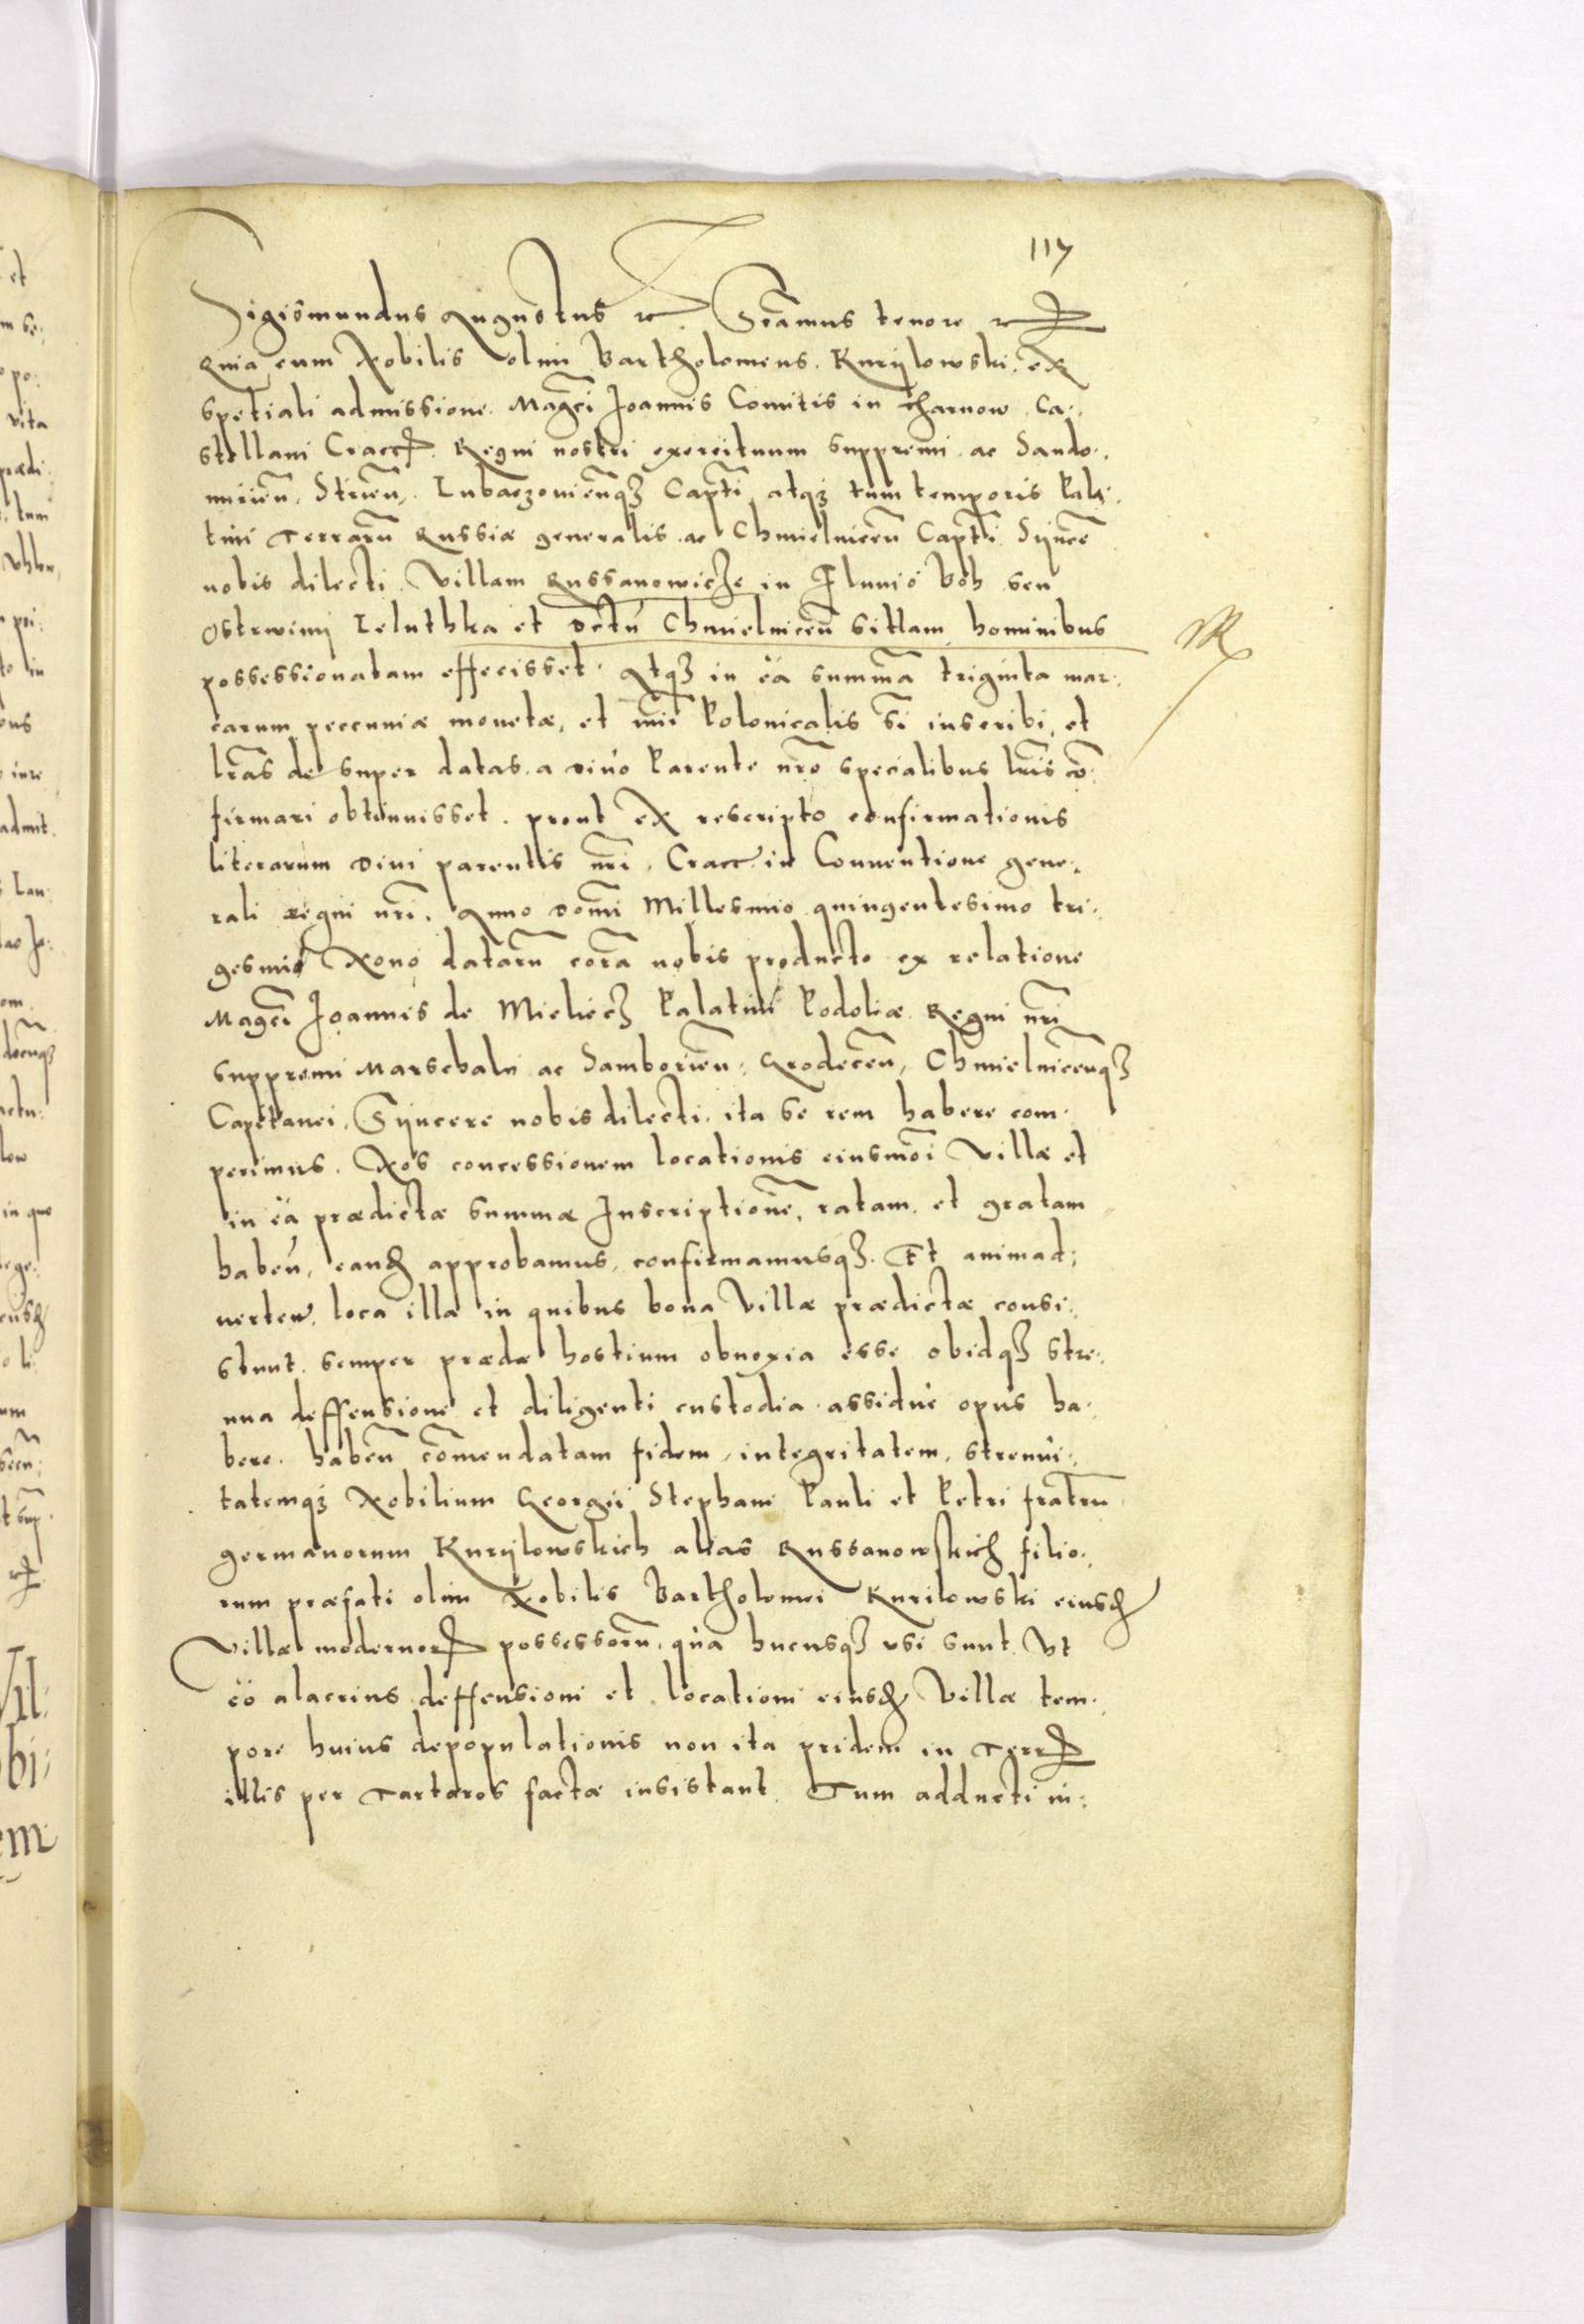 117
Sigismundus Augustus etc. Sctamus tenore etc.
Quia cum Nobilis olim Bartholomeus Kurylowski ex
spetiali admissione Magci Joannis Comitis in Tharnow Ca-
stellani Craccˀ Regni nostri exercituum suppremi ac Sando-
mirien̄ Strien̄ Lubaczoviēnqз Capti atqз tum temporis Pala-
tini Terrarū Russiæ generalis ac Chmielnicēn Capti Syncē
nobis dilecti Villam Russanowicze in Fluuio Boh seu
Ostrwimy Leluthka et Dctū Chmielnicēn sittam hominibus
possessionatam effecisset. Atqз in ea summa triginta mar-
carum peccuniæ monetæ, et nūi Polonicalis sī inscribi, et
lrās de super datas a Diuo Parente nrō specialibus lrīs cō-
firmari obtinuisset. prout ex rescripto confirmationis
literarum Diui parentis nrī, Cracc̄ in Conuentione gene-
rali regni nrī. Anno Domī Millesmio quingentesimo tri-
gesmio Nono datarū corā nobis producto ex relatione
Magcī Joannis de Mieliecз Palatini Podoliæ Regni nrī
suppremi Marschalci ac Samborien̄, Grodecēn, Chmielnicēnqз
Capitanei, Syncere nobis dilecti. ita se rem habere com-
perimus. Nos concessionem locationis eiusmōi Villæ et
in ea prædictæ summæ Inscriptionē, ratam et gratam
habeñ, eandˀ approbamus, confirmamusqз. Et animad-
uerteñ loca illa in quibus bona Villæ prædictæ consi-
stunt semper prædæ hostium obnoxia esse obidqз stre-
nua deffensione et diligenti custodia assidue opus ha-
bere. habeñ cōmendatam fidem, integritatem, strenui-
tatemqз Nobilium Georgii Stephani Pauli et Petri fratrū
germanorum Kurylowskich alias Russanowskich filio-
rum præfati olim Nobilis Bartholomei Kurilowski eiusdˀ
Villæ modernorˀ possessorū, qua hucusqз usi sunt. Ut
eo alacrius deffensioni et locationi eiusdˀ Villæ tem-
pore huius depopulationis non ita pridem in Terrˀ
illis per Tartaros factæ insistant. Tum adducti in-